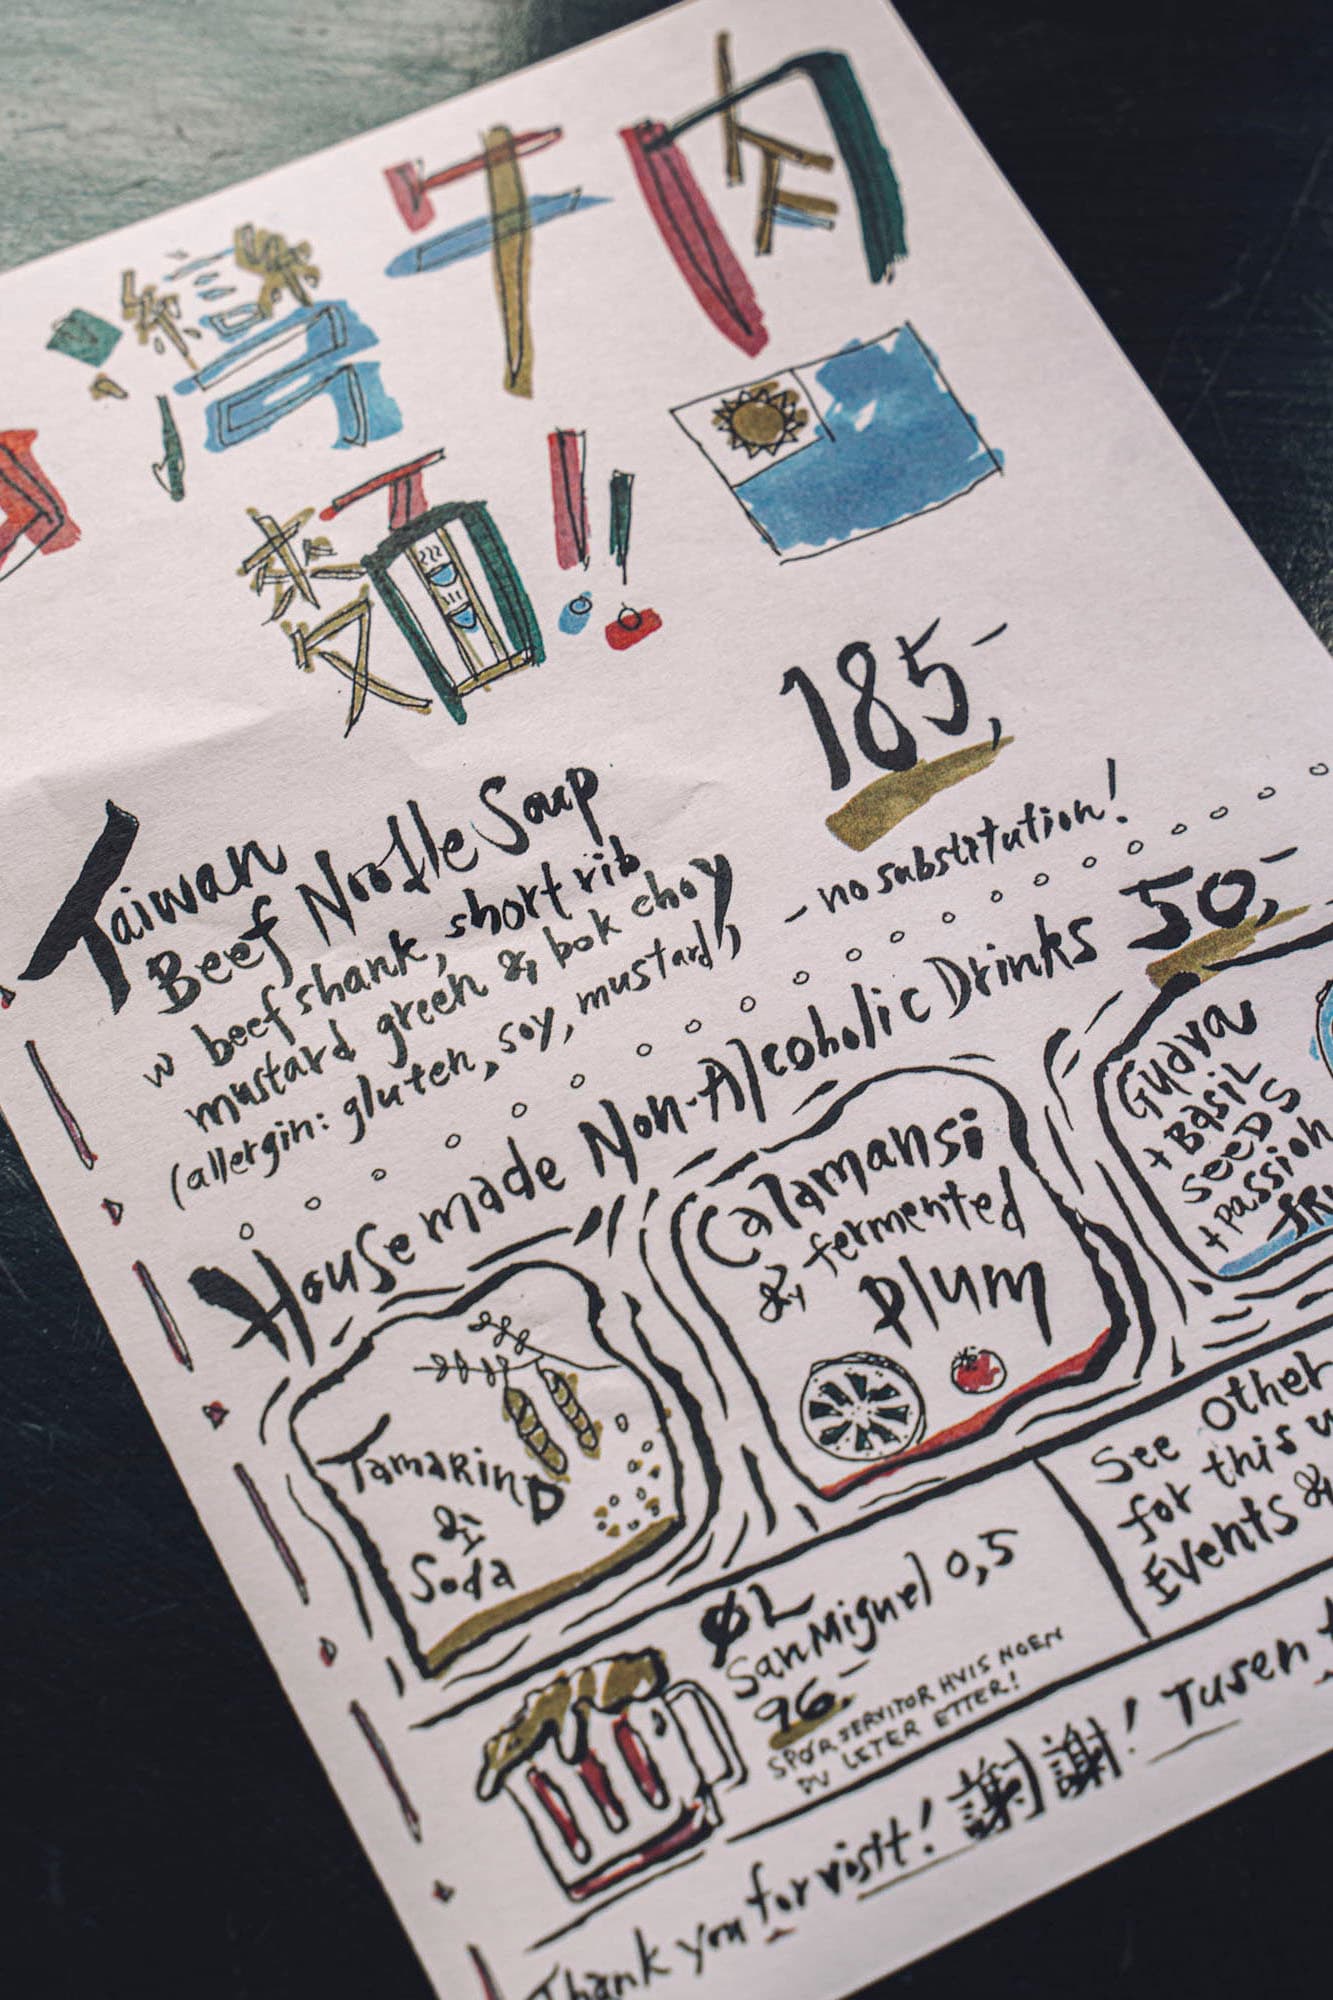 灣牛肉
麵!!
185,-
Taiwan
Beef Noodle Soup
w beef shank, short rib
mustard green & bok choy
(allergin: gluten, soy, mustard)
- no substitution!
Housemade Non-Alcoholic Drinks 50,-
Tamarind
&
Soda
Calamansi
& fermented
plum
Guava
+ Basil
seeds
+ passion
See Other
for this
Events &
ØL
San Miguel 0,5
96.-
SPØR SERVITØR HVIS NOEN
DU LETER ETTER!
Thank you for visit! 謝謝! Tusen